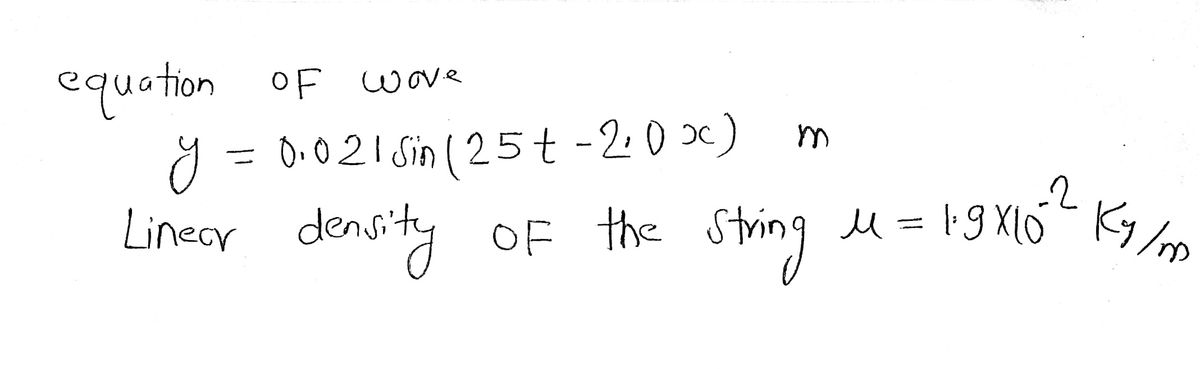 equation OF wave
y = 0.021 sin(25t - 2.0x) m
Linear density OF the string μ = 1.9X10⁻² Kg/m